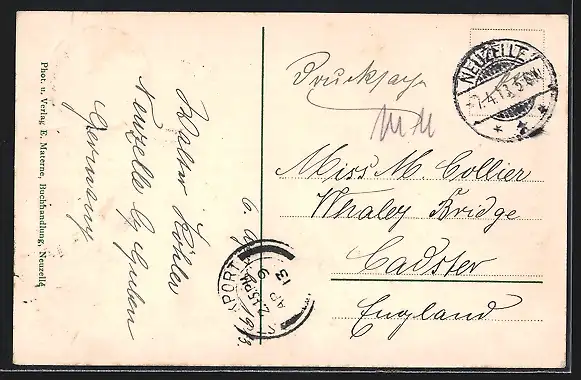 Phot. u. Verlag E. Materne, Buchhandlung, Neuzelle
Walter Köhler
Neuzelle by Guben
Germany
6. 4. 1913.
Drucksache
NEUZELLE
7.4.13. 5-6N
Miss M. Collier
Whaley Bridge
Cadster
England
PORT
2.15PM
AP 9
13